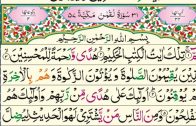 ٣١ سُوْرَةُ لُقْمٰنَ مَكِّيَّةٌ ٥٧
بِسْمِ اللهِ الرَّحْمٰنِ الرَّحِيْمِ
تِلْكَ اٰيٰتُ الْكِتٰبِ الْحَكِيْمِ هُدًى وَّرَحْمَةً لِّلْمُحْسِنِيْنَ
يُقِيْمُوْنَ الصَّلٰوةَ وَيُؤْتُوْنَ الزَّكٰوةَ وَهُمْ بِالْاٰخِرَةِ
يُوْقِنُوْنَ اُولٰٓئِكَ عَلٰى هُدًى مِّنْ رَّبِّهِمْ وَاُولٰٓئِكَ هُمُ
وَمِنَ النَّاسِ مَنْ يَّشْتَرِيْ لَهْوَ الْحَدِيْثِ لِيُضِلَّ